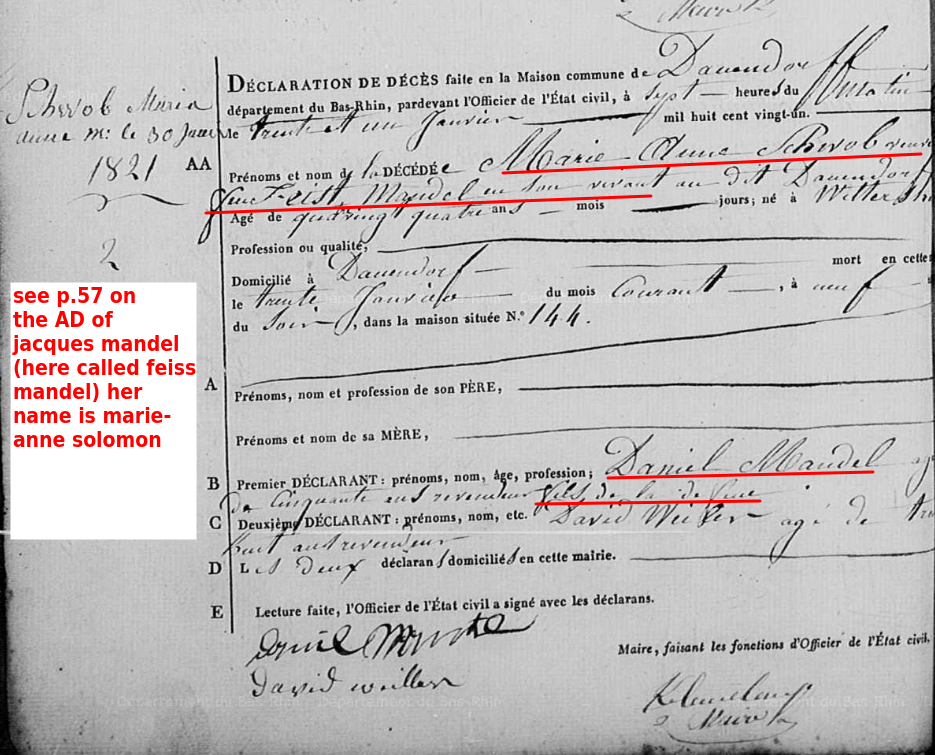 Maire
Schwob Maria
anne m: le 30 Janv
1821
2
AA
DÉCLARATION DE DÉCÈS faite en la Maison commune de Dauendorff
département du Bas-Rhin, pardevant l'Officier de l'État civil, à sept heures du matin
le trente et un Janvier mil huit cent vingt-un.
Prénoms et nom de la DÉCÉDÉe Marie Anne Schwob veuve
feu Feist Mandel en son vivant au dit Dauendorf
Agé de quatringt quatre ans mois jours; né à Wittersh
Profession ou qualité,
Domicilié à Dauendorf mort en cette
le trente Janvier du mois Courant, à neuf
du Soir, dans la maison située N.° 144.
see p.57 on
the AD of
jacques mandel
(here called feiss
mandel) her
name is marie-
anne solomon
A Prénoms, nom et profession de son PÈRE,
Prénoms et nom de sa MÈRE,
B Premier DÉCLARANT : prénoms, nom, âge, profession; Daniel Mandel ag
de Cinquante ans revendeur fils de la defunte
C Deuxième DÉCLARANT : prénoms, nom, etc. David Weiller agé de tre
huit ans revendeur
D Les deux déclarans domiciliés en cette mairie.
E Lecture faite, l'Officier de l'État civil a signé avec les déclarans.
david weiller
Maire, faisant les fonctions d'Officier de l'État civil.
Maire